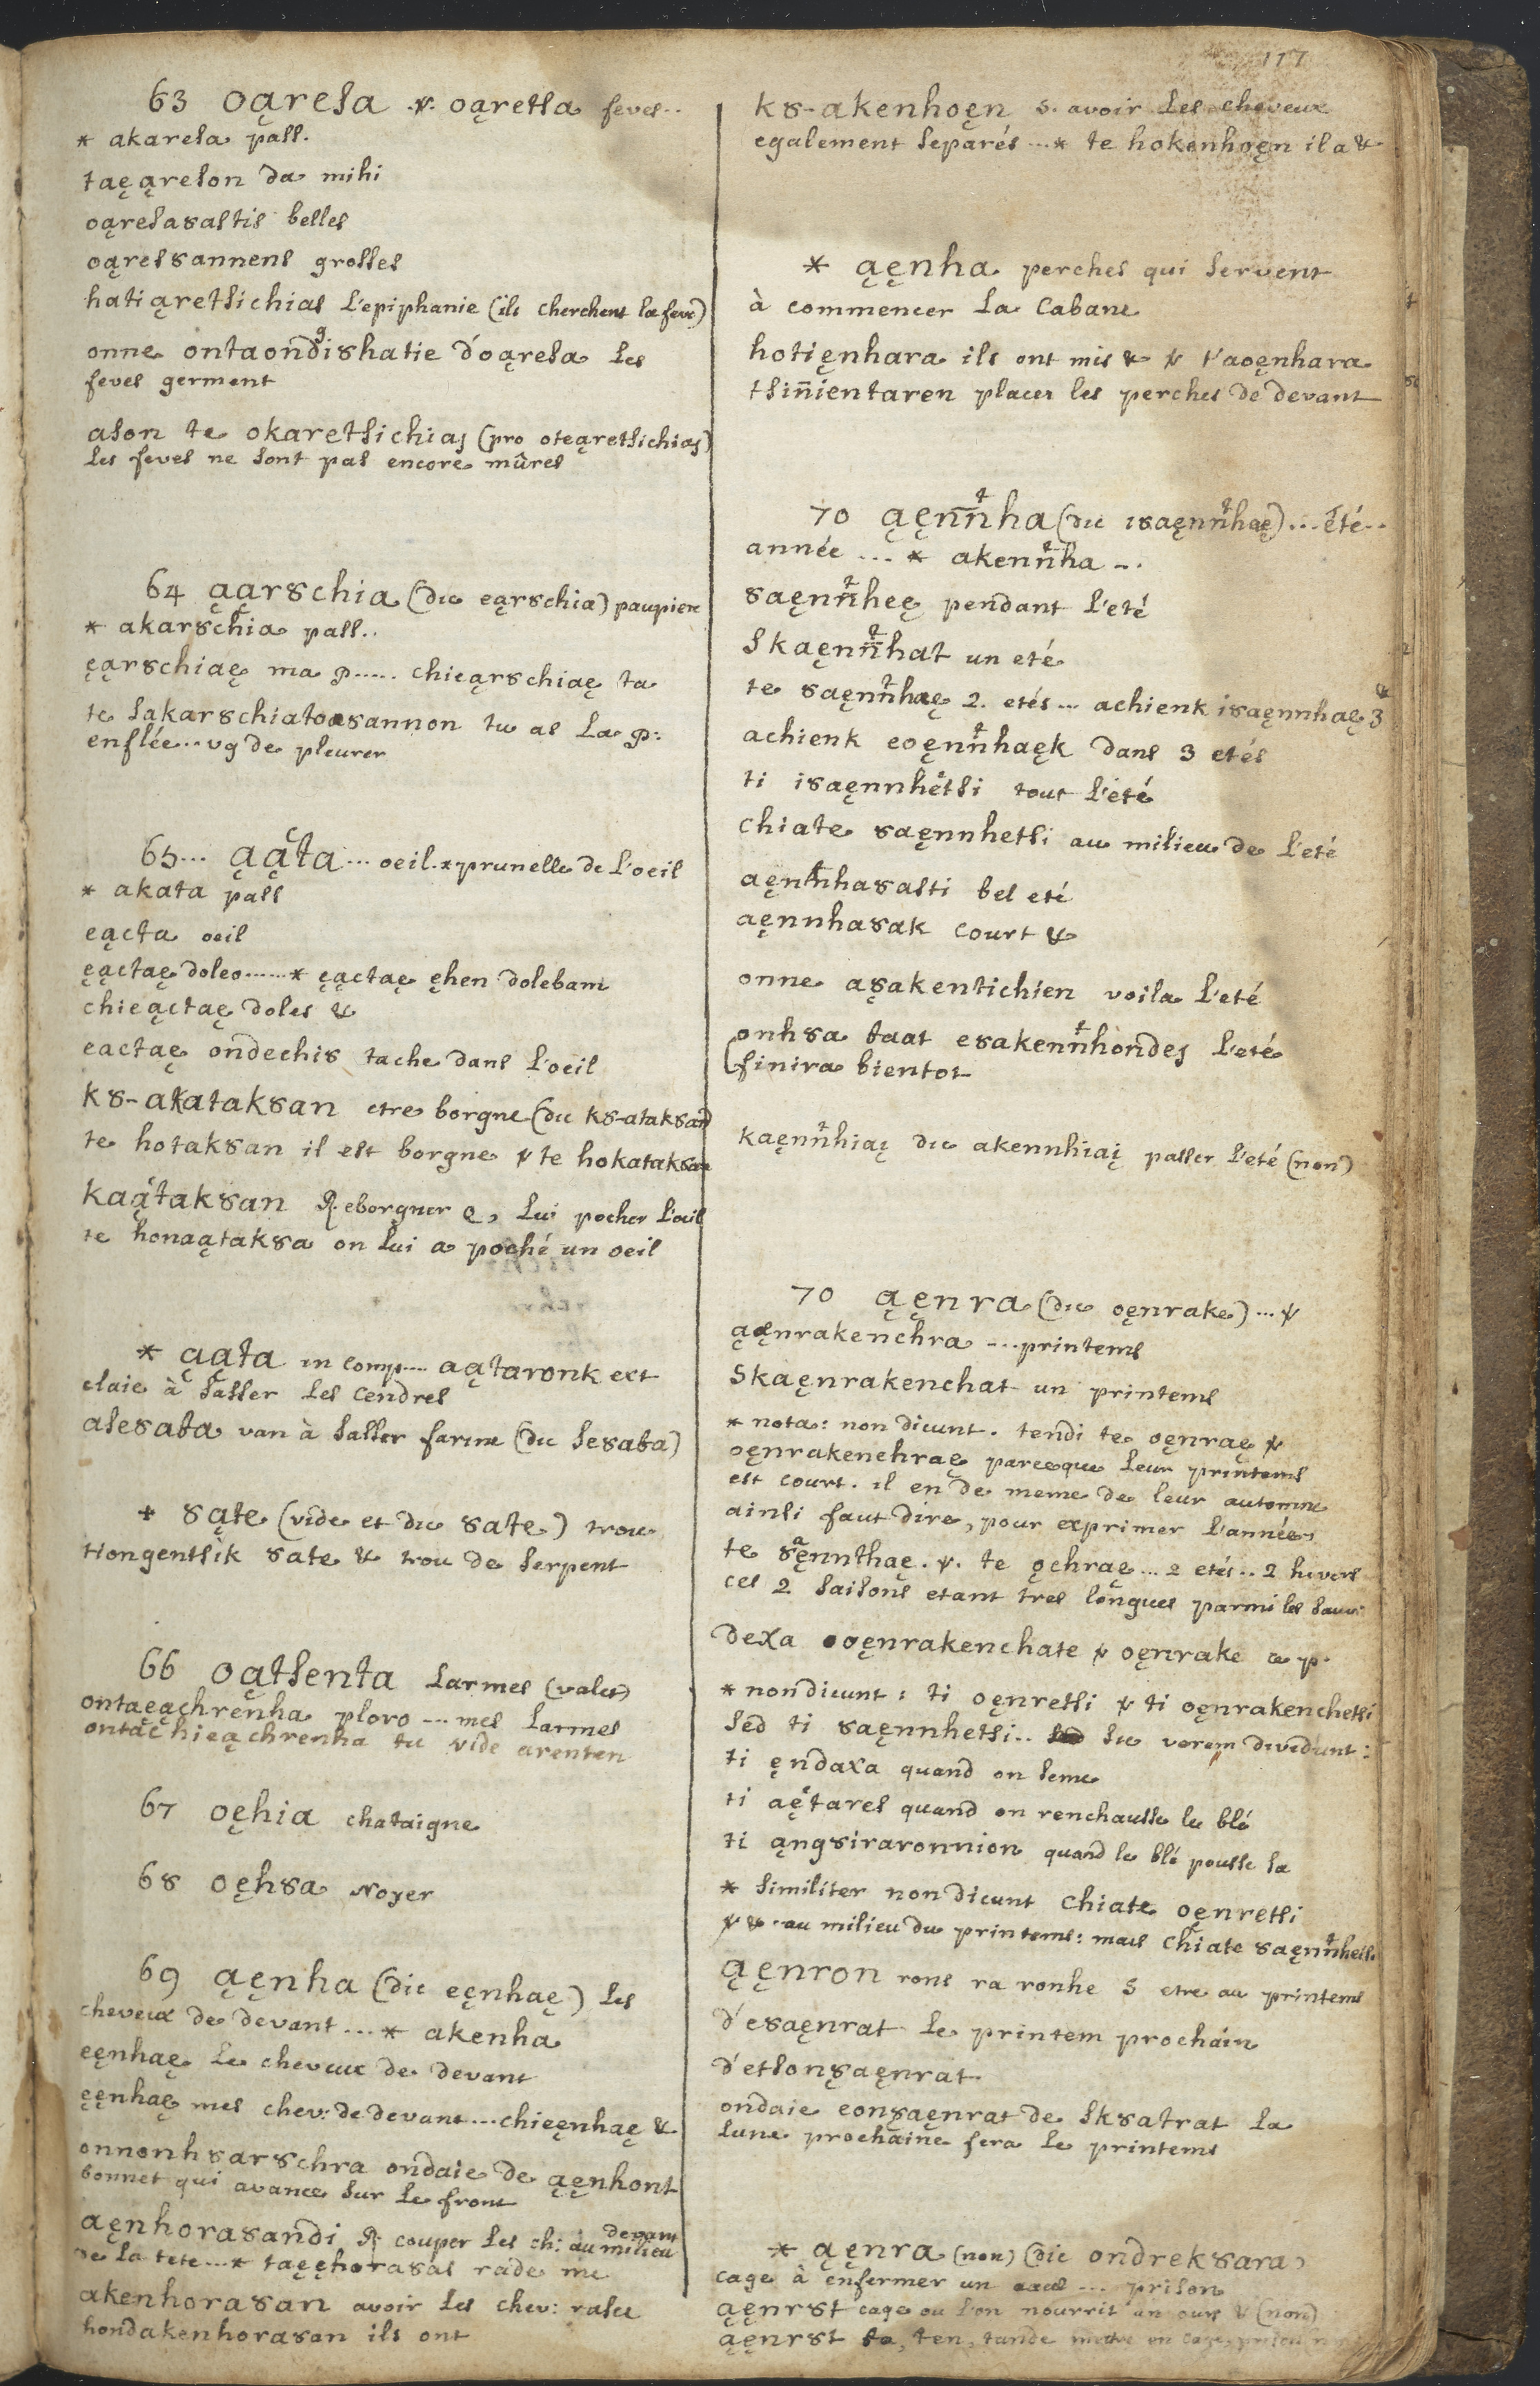 117
63 oąresa .v. oąretsa feves..
* akaresa pass.
taęąreson da mihi
oąresa8astis belles
oąres8annens grosses
hatiąretsichias L'epiphanie (ils cherchent la feve)
onne ontaondi8hatie d'oąresa Les
feves germent
ason te okaretsichiaj (pro oteąretsichiaj)
Les feves ne sont pas encore mûres
64 ąąr8chia (dic eąr8chia) paupiere
* akar8chia pass..
ęąr8chiaę ma p..... chieąr8chiaę ta
te 8annon tu as La p:
enflée... vg de pleurer
65... ąąta... oeil.*prunelle de L'oeil
* akata pass
eącta oeil
ęąctaę doleo......* ęąctaę ęhen dolebam
chieąctaę doles &
eactaę ondechi8 tache dans L'oeil
K8-akatak8an etre borgne (dic K8-atak8an)
te hotak8an il est borgne v te hokatak8an
Kaątak8an R. eborgner q, Lui pocher L'oeil
te honaątak8a on Lui a poché un oeil
* ąąta in comp.... aątaronk ect
claie à sasser Les cendres
ase8ata van à sasser farine (dic se8ata)
* 8ąte (vide et dic 8ate) trou
tiongentsik 8ate & trou de serpent
66 oątsenta Larmes (vales)
ontaeąchrenha ploro --- mes Larmes
ontaęchieąchrenha tu vide arenten
67 oęhia chataigne
68 oęh8a Noyer
69 ąęnha (dic eęnhaę) Les
cheveux de devant ... * akenha
eęnhaę Le cheveux de devant
ęęnhaę mes chev: de devant ... chieęnhaę &
onnonh8ar8chra ondaie de ąęnhont
bonnet qui avance sur Le front
aęnhora8andi R. couper Les ch: au milieu devant
de La tete ...* taęęhora8as rade me
akenhora8an avoir Les chev: rasés
hondakenhora8an ils ont
K8-akenhoęn s. avoir Les cheveux
egalement separés ...* te hokenhoęn il a &
* ąęnha perches qui servent
à commencer La Cabane
hotięnhara ils ont mis & v t'aoęnhara
tsinnientaren placer les perches de devant
70 ąęnnha (dic i8aęnnhaę) ... été..
année ... * akennha ...
8aęnnheę pendant L'eté
Skaęnnhat un eté
te 8aęnnhaę 2. etés ... achienk i8aęnnhaę 3
achienk eoęnnhaęk dans 3 etés
ti i8aęnnhetsi tout L'eté
chiate 8aęnnhetsi au milieu de L'eté
aęnnha8asti bel eté
aęnnha8ak court &
onne a8akentichien voila L'eté
onh8a taat e8akennhondej L'eté
finira bientot
Kaęnnhiaj dic akennhiaj passer L'eté (non)
70 ąęnra (dic oęnrake) ... v
ąęnrakenchra ... printems
Skaęnrakenchat un printems
* nota: non dicunt. tendi te oęnraę v
oęnrakenchraę parceque Leur printems
est court. il en de meme de leur automne
ainsi faut dire, pour exprimer L'année,
te 8aęnnthaę .v. te ochraę ... 2 etés .. 2 hivers
ces 2 saisons etant tres longues parmi les sauv:
dexa oęnrakenchate v oęnrake a p.
* non dicunt: ti oęnretsi v ti oęnrakenchetsi
sed ti 8aęnnhetsi.. sic verem dividunt:
ti ęndaxa quand on seme
ti aętares quand on renchausse le blé
ti ąng8iraronnion quand le blé pousse sa
* similiter non dicunt chiate oęnretsi
v & .au milieu du printems: mais chiate 8aęnnhetsi
ąęnron rons ra ronhe S etre au printems
d'e8aęnrat Le printem prochain
d'etson8aęnrat
ondaie eon8aęnrat de sk8atrat La
Lune prochaine fera Le printems
* ąęnra (non) (dic ondrek8ara)
cage à enfermer un ... prison
ąęnr8t cage ou L'on nourrit un ours & (non)
ąęnr8t ta, ten, tande mettre en cage, prison